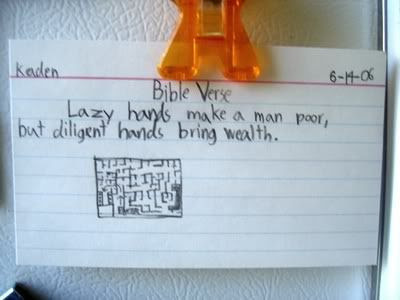 Keaden 6-14-06
Bible Verse
Lazy hands make a man poor,
but diligent hands bring wealth.